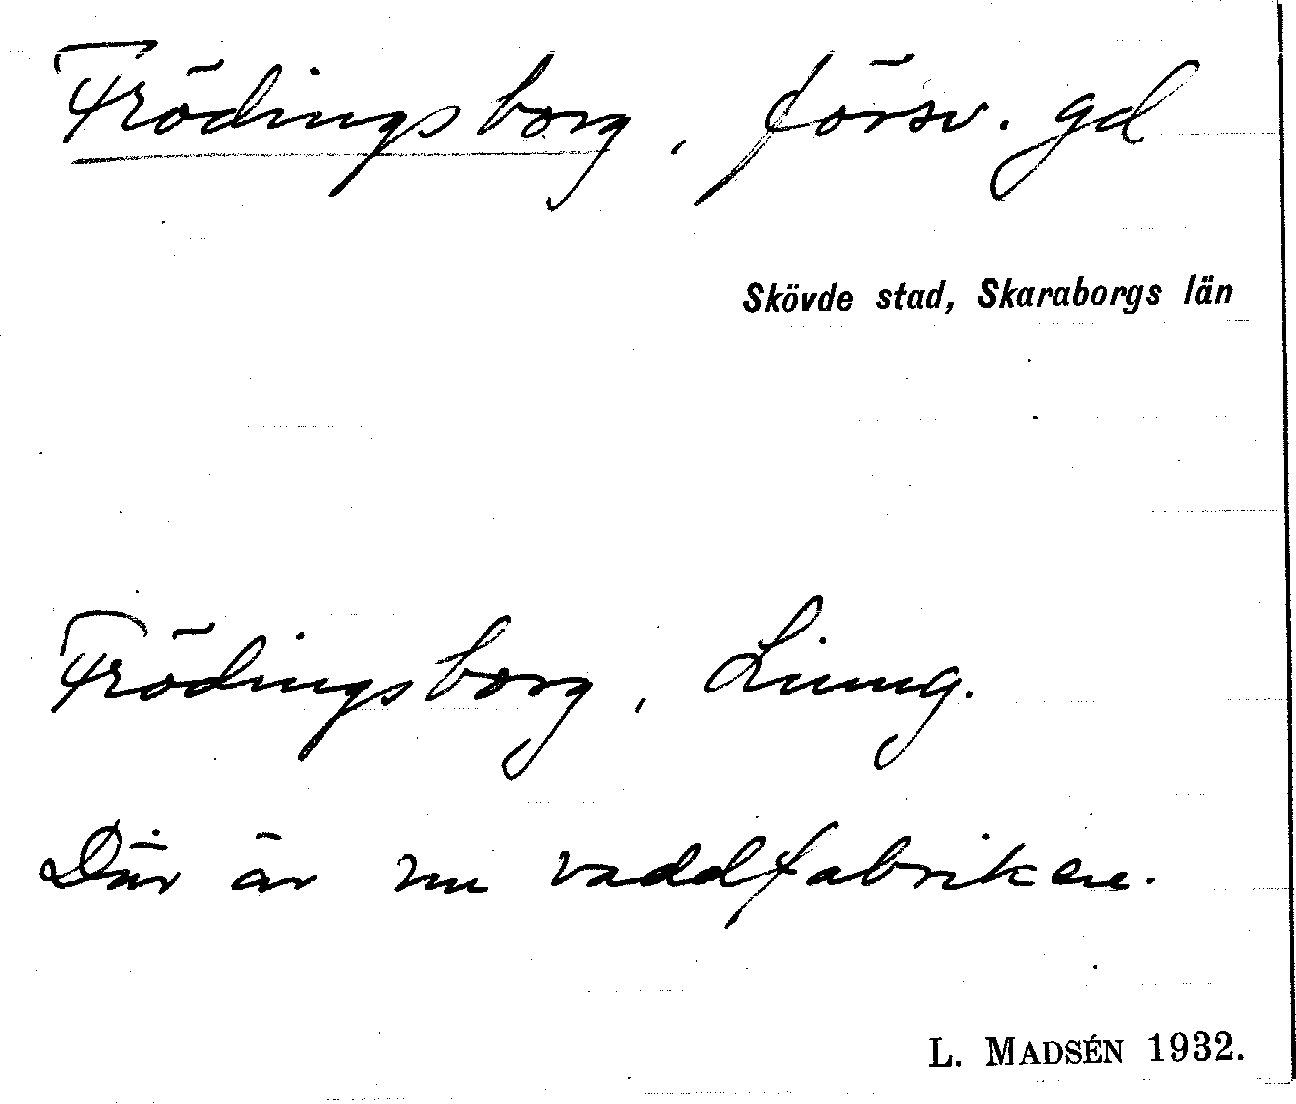 Frödingsborg, försv. gd
Skövde stad, Skaraborgs län
Frödingsborg, Liung.
Där är nu vaddfabriken.
L. MADSÉN 1932.